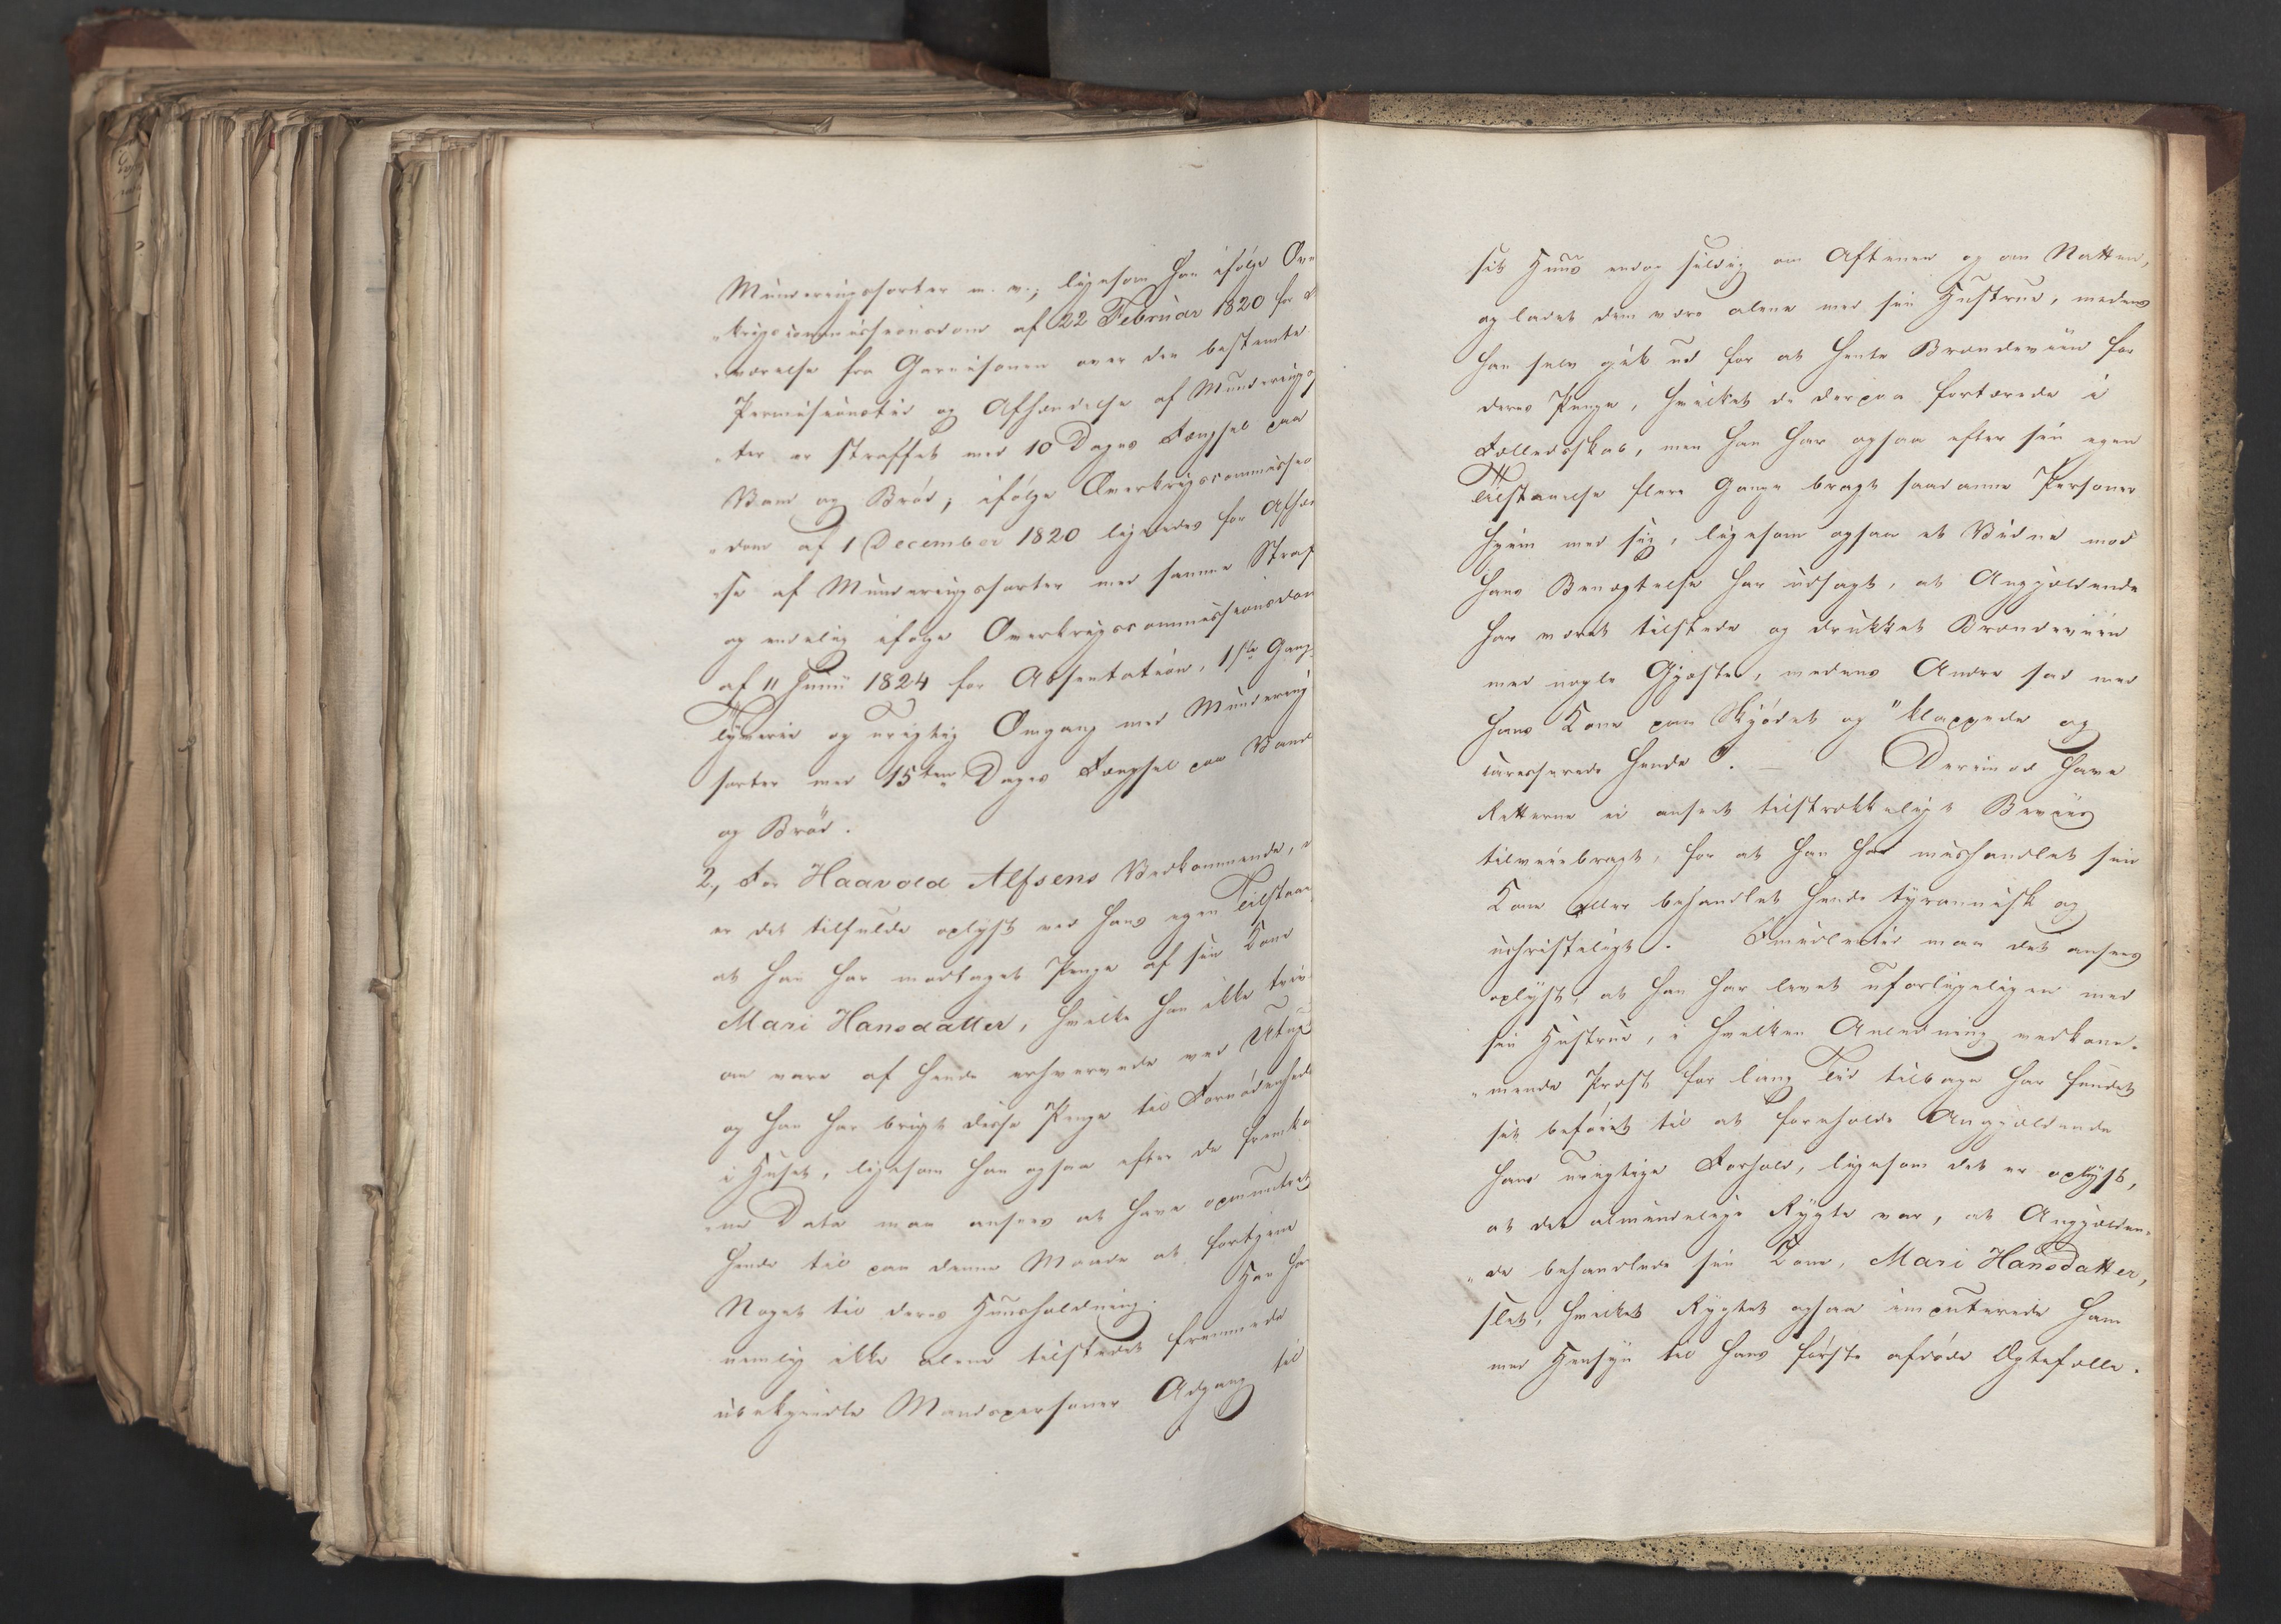 Munderingssorter m. v.; ligesom han ifølge Over
krigscommissionsdom af 22 Februar 1820 for
værelse fra Garnisonen over den bestemte
Permissionstid og Afhændelse af Munderings
ter er straffet med 10 Dages Fængsel paa
Vand og Brød; ifølge Overkrigscommissions
dom af 1 December 1820 ligeledes for Afhæn
se af Munderingssorter med samme Straf
og endelig ifølge Overkrigscommissionsdom
af 11 Junii 1824 for Absentation, 1ste Gang
Tyverie og urigtig Omgang med Munderings
sorter med 15ten Dages Fængsel paa Vand
og Brød.
2, For Haavold Alfsens Vedkommende,
er det tilfulde oplyst ved hans egen Tilstaae
at han har modtaget Penge af sin Kone
Mari Hansdatter, hvilke han ikke tviv
om vare af hende erhvervede ved Utugt
og han har brugt disse Penge til Fornødenhede
i Huset, ligesom han ogsaa efter de fremko
ne Data maa ansees at have opmuntret
hende til paa denne Maade at fortjene
Noget til deres Huusholdning. Han har
nemlig ikke alene tilstedet fremmede
ubekjendte Mandspersoner Adgang til
sit Huus endog sildig om Aftenen og om Natten,
og ladet dem være alene med sin Hustrue, medens
han selv gik ud for at hente Brændeviin for
deres Penge, hvilket de derpaa fortærede i
Fælledsskab, men han har ogsaa efter sin egen
Tilstaaelse flere Gange bragt saadanne Personer
hjem med sig, ligesom ogsaa et Vidne mod
hans Benægtelse har udsagt, at Angjældende
har været tilstede og drukket Brændeviin
med nogle Gjæster, medens Andre sad med
hans Kone paa Skjødet og "klappede og
caresserede hende". — Derimod have
Retterne ei anseet tilstrækkeligt Beviis
tilveiebragt, for at han har mishandlet sin
Kone eller behandlet hende tyrannisk og
uchristeligt. Imidlertid maa det ansees
oplyst, at han har levet uforligeligen med
sin Hustrue, i hvilken Anledning vedkom¬
mende Præst for lang Tid tilbage har fundet
sig beføiet til at foreholde Angjældende
hans urigtige Forhold, ligesom det er oplyst,
at det almindelige Rygte var, at Angjælden¬
de behandlede sin Kone, Mari Hansdatter,
slet, hvilket Rygtet ogsaa imputerede ham
med Hensyn til hans første afdøde Ægtefælle.